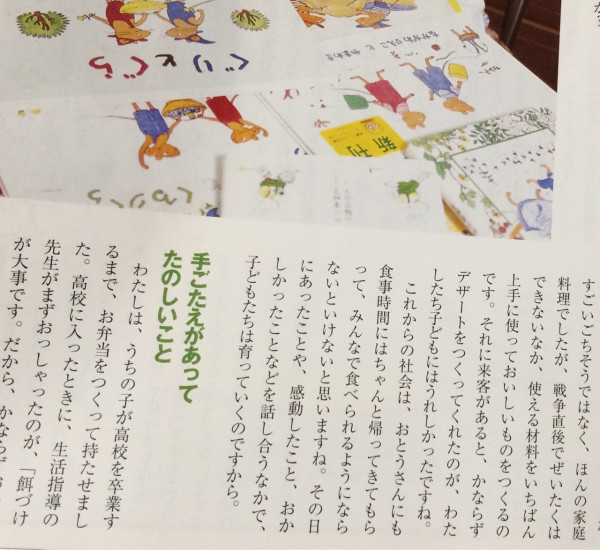 ぐりとぐら
新刊
すごいごちそうではなく、ほんの家庭
料理でしたが、戦争直後でぜいたくは
できないなか、使える材料をいちばん
上手に使っておいしいものをつくるの
です。それに来客があると、かならず
デザートをつくってくれたのが、わた
したち子どもにはうれしかったですね。
これからの社会は、おとうさんにも
食事時間にはちゃんと帰ってきてもら
って、みんなで食べられるようになら
ないといけないと思いますね。その日
にあったことや、感動したこと、おか
しかったことなどを話し合うなかで、
子どもたちは育っていくのですから。
手ごたえがあって
たのしいこと
わたしは、うちの子が高校を卒業す
るまで、お弁当をつくって持たせまし
た。高校に入ったときに、生活指導の
先生がまずおっしゃったのが、「餌づけ
が大事です。だから、かならず